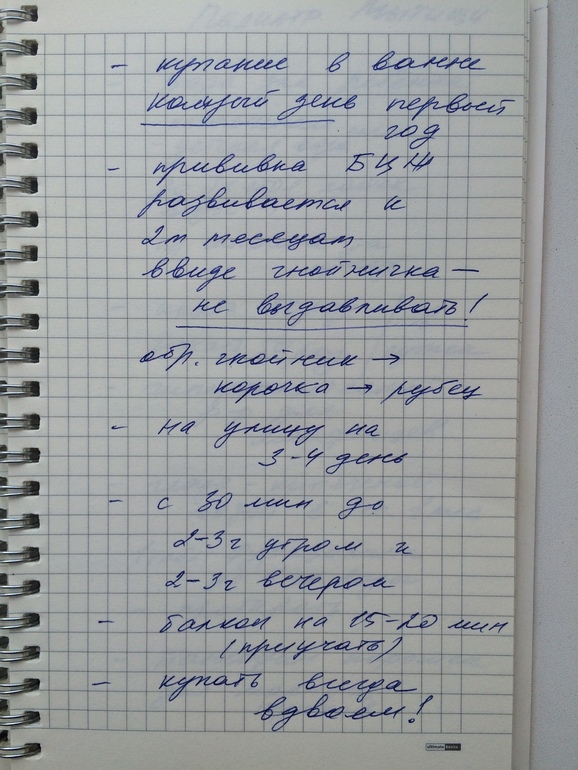 - купание в ванне
каждый день первый
год
- прививка БЦЖ
развивается к
2м месяцам
ввиде гнойничка —
не выдавливать!
обр. гнойник →
корочка → рубец
- на улицу на
3-4 день
- с 30 мин до
2-3ч утром и
2-3ч вечером
- балкон на 15-20 мин
(приучать)
- купать всегда
вдвоем!